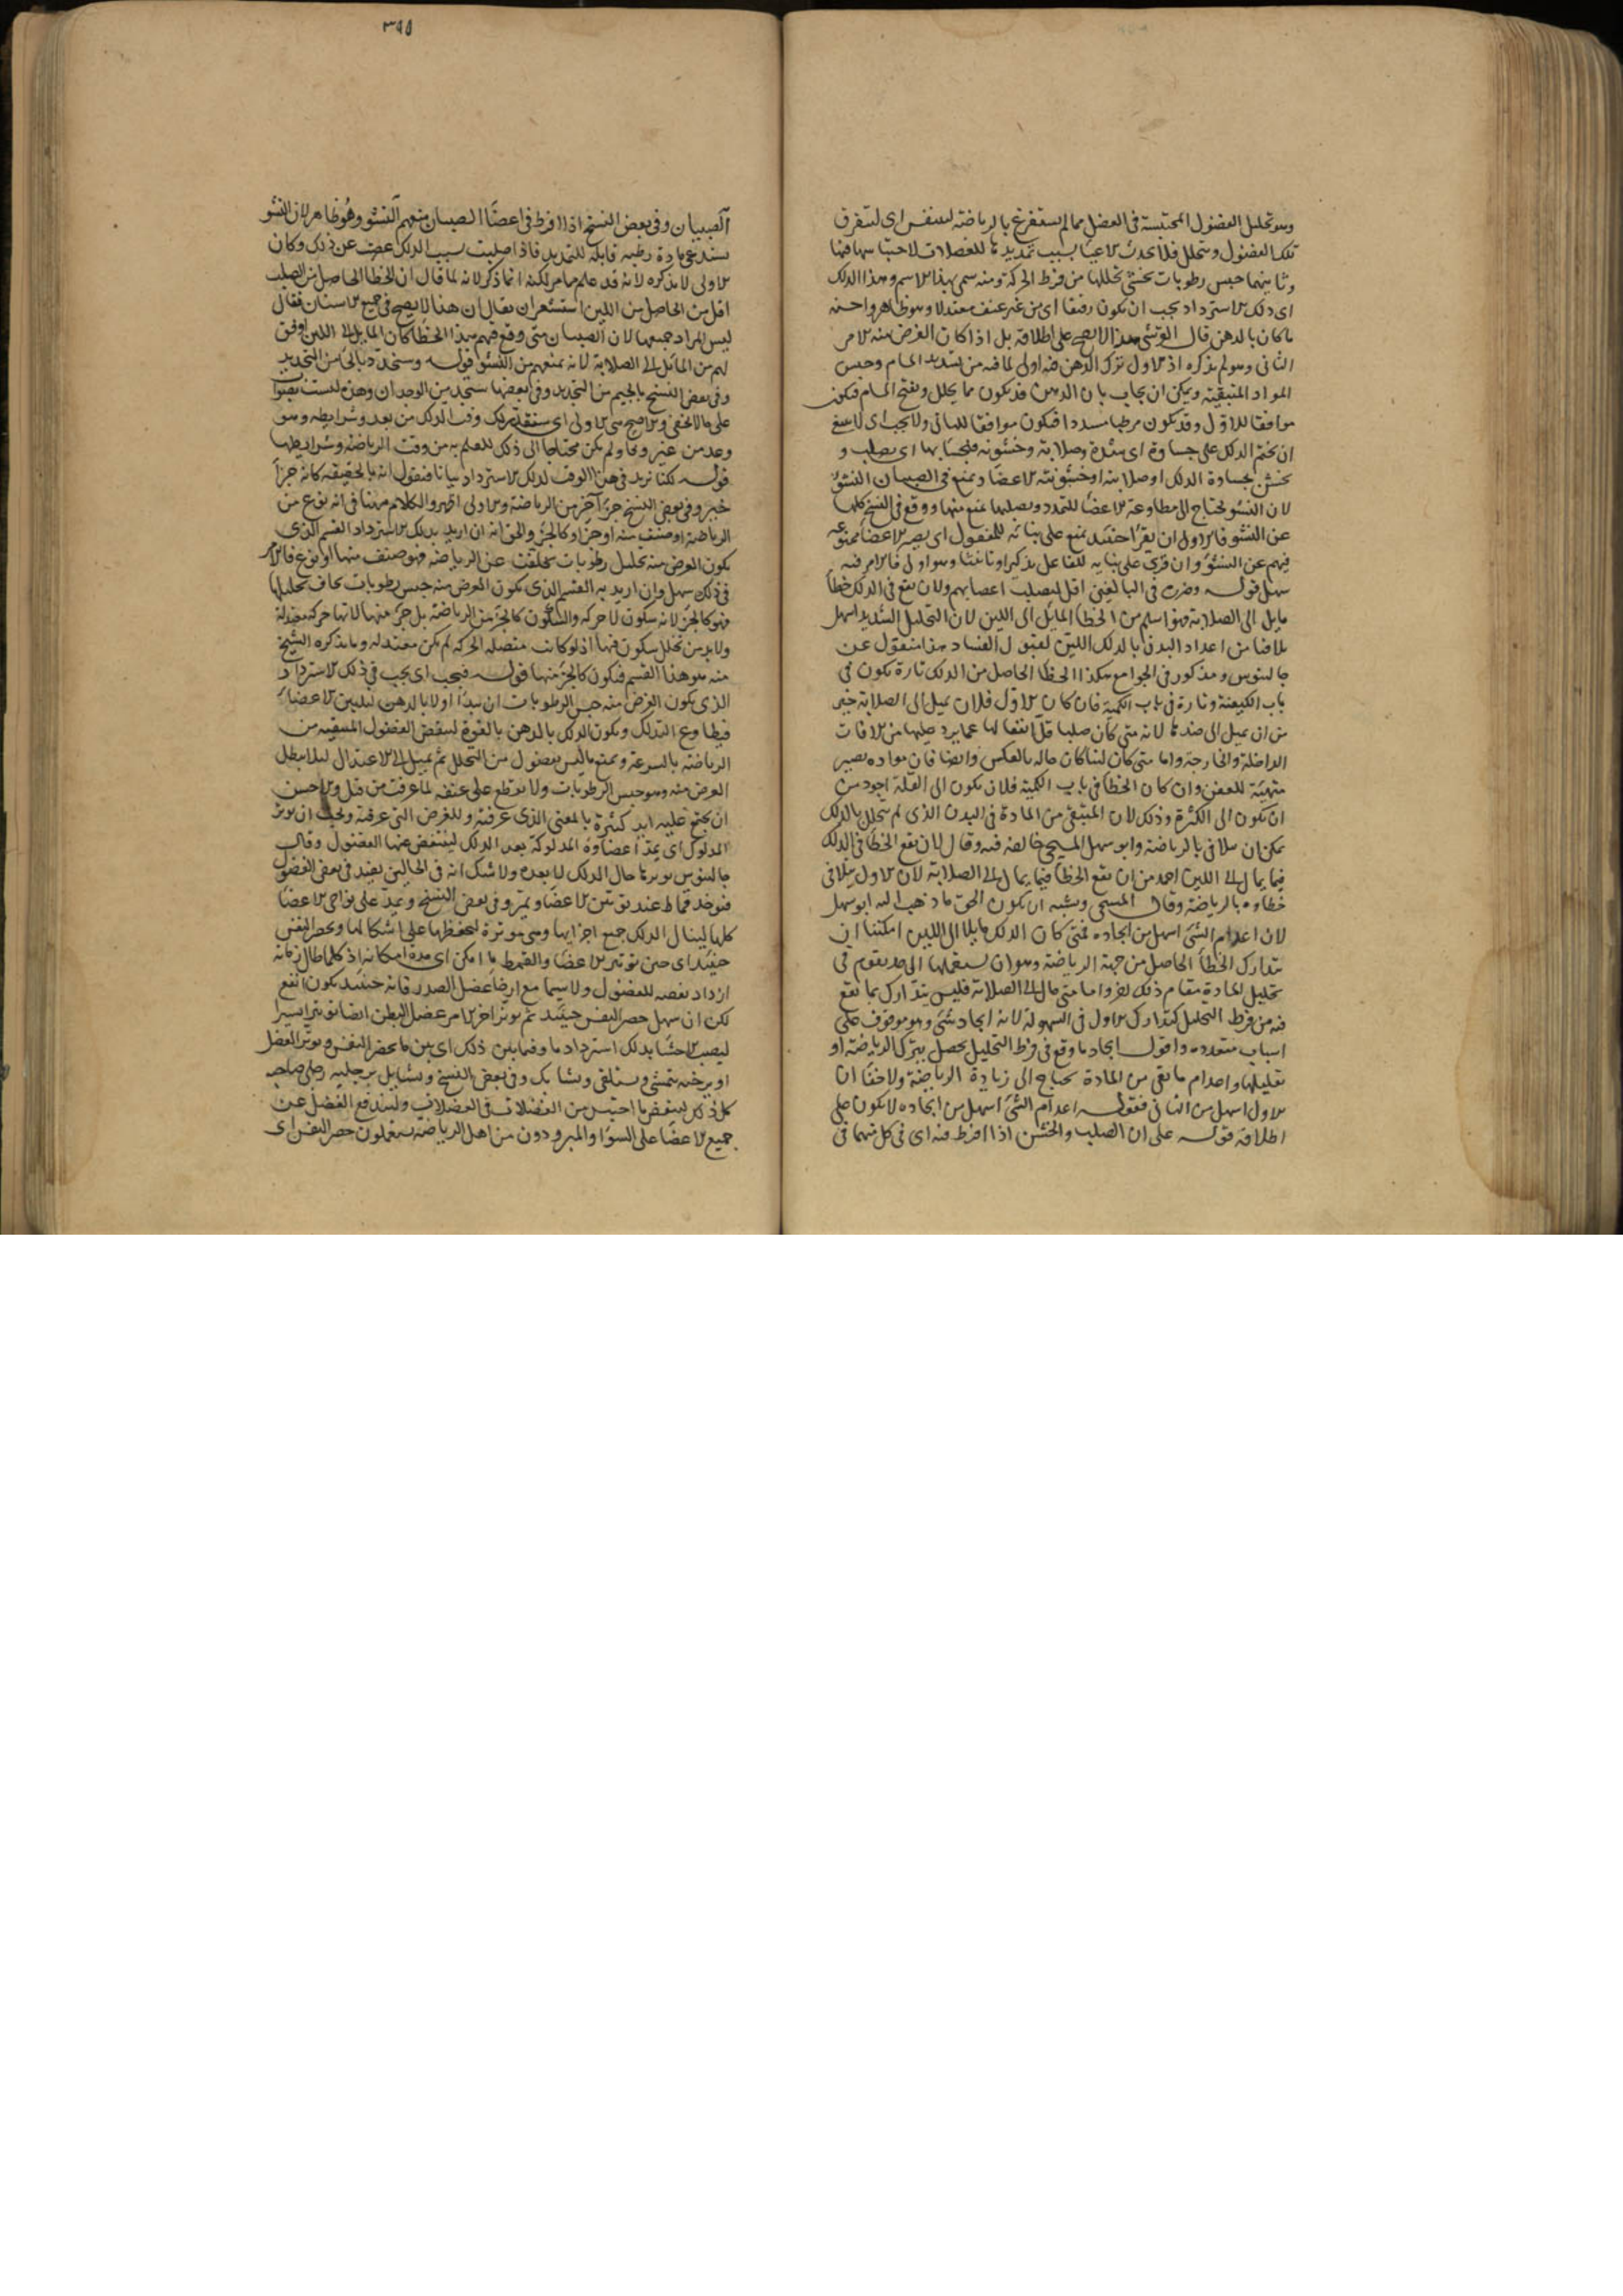 وهو تحليل الفضول المحتبسة فى العضل مما لم يستفرغ بالرياضة لينفش اى لتتفرق
تلك الفضول وتتحلل فلا يحدث الاعيا بسبب تمديدها للعضلات لاحتباسها فيها
وثانيهما حبس رطوبات يخشى تحللها من فرط الحركة ومنه سمى بهذا الاسم وهذا الدلك
اى دلك الاسترداد يجب ان يكون رفيقا اى من غير عنف معتدلا وهو ظاهر واحسنه
ما كان بالدهن قال القرشى هذا لا يصح على اطلاقه بل اذا كان الغرض منه الامر
الثانى وهو لم يذكره اذ الاول ترك الدهن فيه اولى لما فيه من تسديد المسام وحبس
المواد المتبقية ويمكن ان يجاب بان الدهن قد يكون مما يحلل ويفتح المسام فيكون
موافقا للاول وقد يكون مرطبا مسددا فيكون موافقا للثانى ولا يجب اى لا ينبغى
ان يختم الدلك على جساوة اى شدة وصلابة وخشونة فيجسا بها اى يصلب و
يخشن بجساوة الدلك او صلابته او خشونته الاعضا ويمنع فى الصبيان النشو
لان النشو يحتاج الى مطاوعة الاعضا للتمدد وتصلبها يمنع منها ووقع فى النسخ كلها
عن النشو فالاولى ان يقرا حينئذ يمنع على بنائه للمفعول اى يصير الاعضا ممنوعة
فيهم عن النشو وان قرئ على بنايه للفاعل تذكيرا وتانيثا وهو اولى فالامر فيه
سهل قوله وضرره فى البالغين اقل لتصلب اعضائهم ولان يقع فى الدلك خطأ
مايل الى الصلابة فهو اسلم من الخطأ المايل الى اللين لان التحليل الشديد اسهل
تلافيا من اعداد البدن بالدلك اللين لقبول الفساد هذا منقول عن
جالينوس ومذكور فى الجوامع هكذا الخطأ الحاصل من الدلك تارة يكون فى
باب الكيفية وتارة فى باب الكمية فان كان الاول فلان يميل الى الصلابة خير
من ان يميل الى ضدها لانه متى كان صلبا قل انفعالها عما يرد عليها من الافات
الداخلة والخارجة واما متى كان لينا كان حاله بالعكس وايضا فان مواده يصير
متهيئة للعفن وان كان الخطأ فى باب الكمية فلان يكون الى القلة اجود من
ان يكون الى الكثرة وذلك لان المتبقى من المادة فى البدن الذى لم يتحلل بالدلك
يمكن ان يتلافى بالرياضة وابو سهل المسيحى خالفه فيه وقال لان يقع الخطأ فى الدلك
فيما يمال الى اللين احمد من ان يقع الخطأ فيما يمال الى الصلابة لان الاول يتلافى
خطاوه بالرياضة وقال المسيحى ويشبه ان يكون الحق ما ذهب اليه ابو سهل
لان اعدام الشئ اسهل من ايجاده فمتى كان الدلك مايلا الى اللين امكننا ان
نتدارك الخطأ الحاصل من جهة الرياضة وهو ان نستعملها الى حد يقوم فى
تحليل المادة مقام ذلك القدر واما متى مال الى الصلابة فليس يتدارك بما يقع
فيه من فرط التحليل كتدارك الاول فى السهولة لانه ايجاد شئ وهو موقوف على
اسباب متعددة واقول ايجاد ما وقع فى فرط التحليل يحصل بترك الرياضة او
تقليلها واعدام ما بقى من المادة يحتاج الى زيادة الرياضة ولا خفا ان
الاول اسهل من الثانى فقوله اعدام الشئ اسهل من ايجاده لا يكون على
اطلاقه قوله على ان الصلب والخشن اذا افرط فيه اى فى كل منهما فى
٣٩٥
الصبيان وفى بعض النسخ اذا افرط فى اعضا الصبيان منعهم النشو وهو ظاهر لان النشو
يستدعى مادة رطبة قابلة للتمديد فاذا صلبت بسبب الدلك عصت عن ذلك وكان
الاولى لا يذكره لانه قد علم مما مر لكنه انما ذكر لانه لما قال ان الخطأ الحاصل من الصلب
اقل من الحاصل من اللين استشعر ان يقال ان هذا لا يصح فى جميع الاسنان فقال
ليس المراد جميعها لان الصبيان متى وقع فيهم هذا الخطأ كان المايل الى اللين اوفق
لهم من المايل الى الصلابة لانه يمنعهم من النشو قوله وستجد ذلك من التحديد
وفى بعض النسخ بالجيم من التجديد وفى بعضها ستجد من الوجدان وهذه ليست بصواب
على ما لا يخفى والاصح هى الاولى اى وقت الدلك من بعد وشرايطه وهو
وعد من غير وفا ولم يكن محتاجا الى ذلك للعلم به من وقت الرياضة وشرايطها
قوله لكنا نريد فى هذا الوقت لدلك الاسترداد بيانا فنقول انه بالحقيقة كانه جزأ
خير وفى بعض النسخ جزء آخر من الرياضة والاولى اظهر والكلام ههنا فى انه نوع من
الرياضة او صنف منه او جزء او كالجزء والحق انه ان اريد بدلك الاسترداد القسم الذى
يكون الغرض منه تحليل رطوبات تخلفت عن الرياضة فهو صنف منها او نوع فالامر
فى ذلك سهل وان اريد به القسم الذى يكون الغرض منه حبس رطوبات يخاف تحليلها
فهو كالجزء لانه سكون لا حركة والسكون كالجزء من الرياضة بل جزء منها لانها حركة معتدلة
ولا بد من تخلل سكون فيها اذ لو كانت متصلة الحركة لم يكن معتدلة وما يذكره الشيخ
منه هو هذا القسم فيكون كالجزء منها قوله فيجب اى يجب فى دلك الاسترداد
الذى يكون الغرض منه حبس الرطوبات ان يبدا اولا بالدهن لتلين الاعضا
فيطاوع التدلك ويكون الدلك بالدهن بالقوة لينفض الفضول المتبقية من
الرياضة بالسرعة ويمنع ما ليس بفضول من التحلل ثم يميل الى الاعتدال ليلا يبطل
الغرض منه وهو حبس الرطوبات ولا يقطع على عنفه لما عرفت من قبل والاحسن
ان يجتمع عليه ايد كثيرة بالمعنى الذى عرفته وللغرض التى عرفته ويجب ان يوتر
المدلوك اى يمد اعضاوه المدلوكة بعد الدلك لينفض عنها الفضول وقال
جالينوس يوترها حال الدلك لا بعده ولا شك انه فى الحالين يفيد فى نفض الفضول
فيوخذ قماط عند توتير الاعضا ويمر وفى بعض النسخ ويمد على نواحى الاعضا
كلها لينال الدلك جميع اجزايها وهى موترة لتحفظها على اشكالها ويحصر النفس
حينئذ اى حين توتير الاعضا والقمط ما امكن اى مدة امكانه اذ كلما طال زمانه
ازداد نفضه للفضول ولا سيما مع ارخا عضل الصدر فانه حينئذ يكون انفع
لكن ان سهل حصر النفس حينئذ ثم يوتر اخر الامر عضل البطن ايضا توتيرا يسيرا
ليصيب الاحشا بذلك استرداد ما وفيما بين ذلك اى بين ما يحصر النفس ويوتر العضل
او يرخيه يتمشى ويستلقى ويشابك وفى بعض النسخ ويشايل برجليه رجلى صاحبه
كل ذلك لينفض ما احتبس من الفضلات فى العضلات وليندفع الفضل عن
جميع الاعضا على السوا والمبرودون من اهل الرياضة يستعملون حصر النفس اى